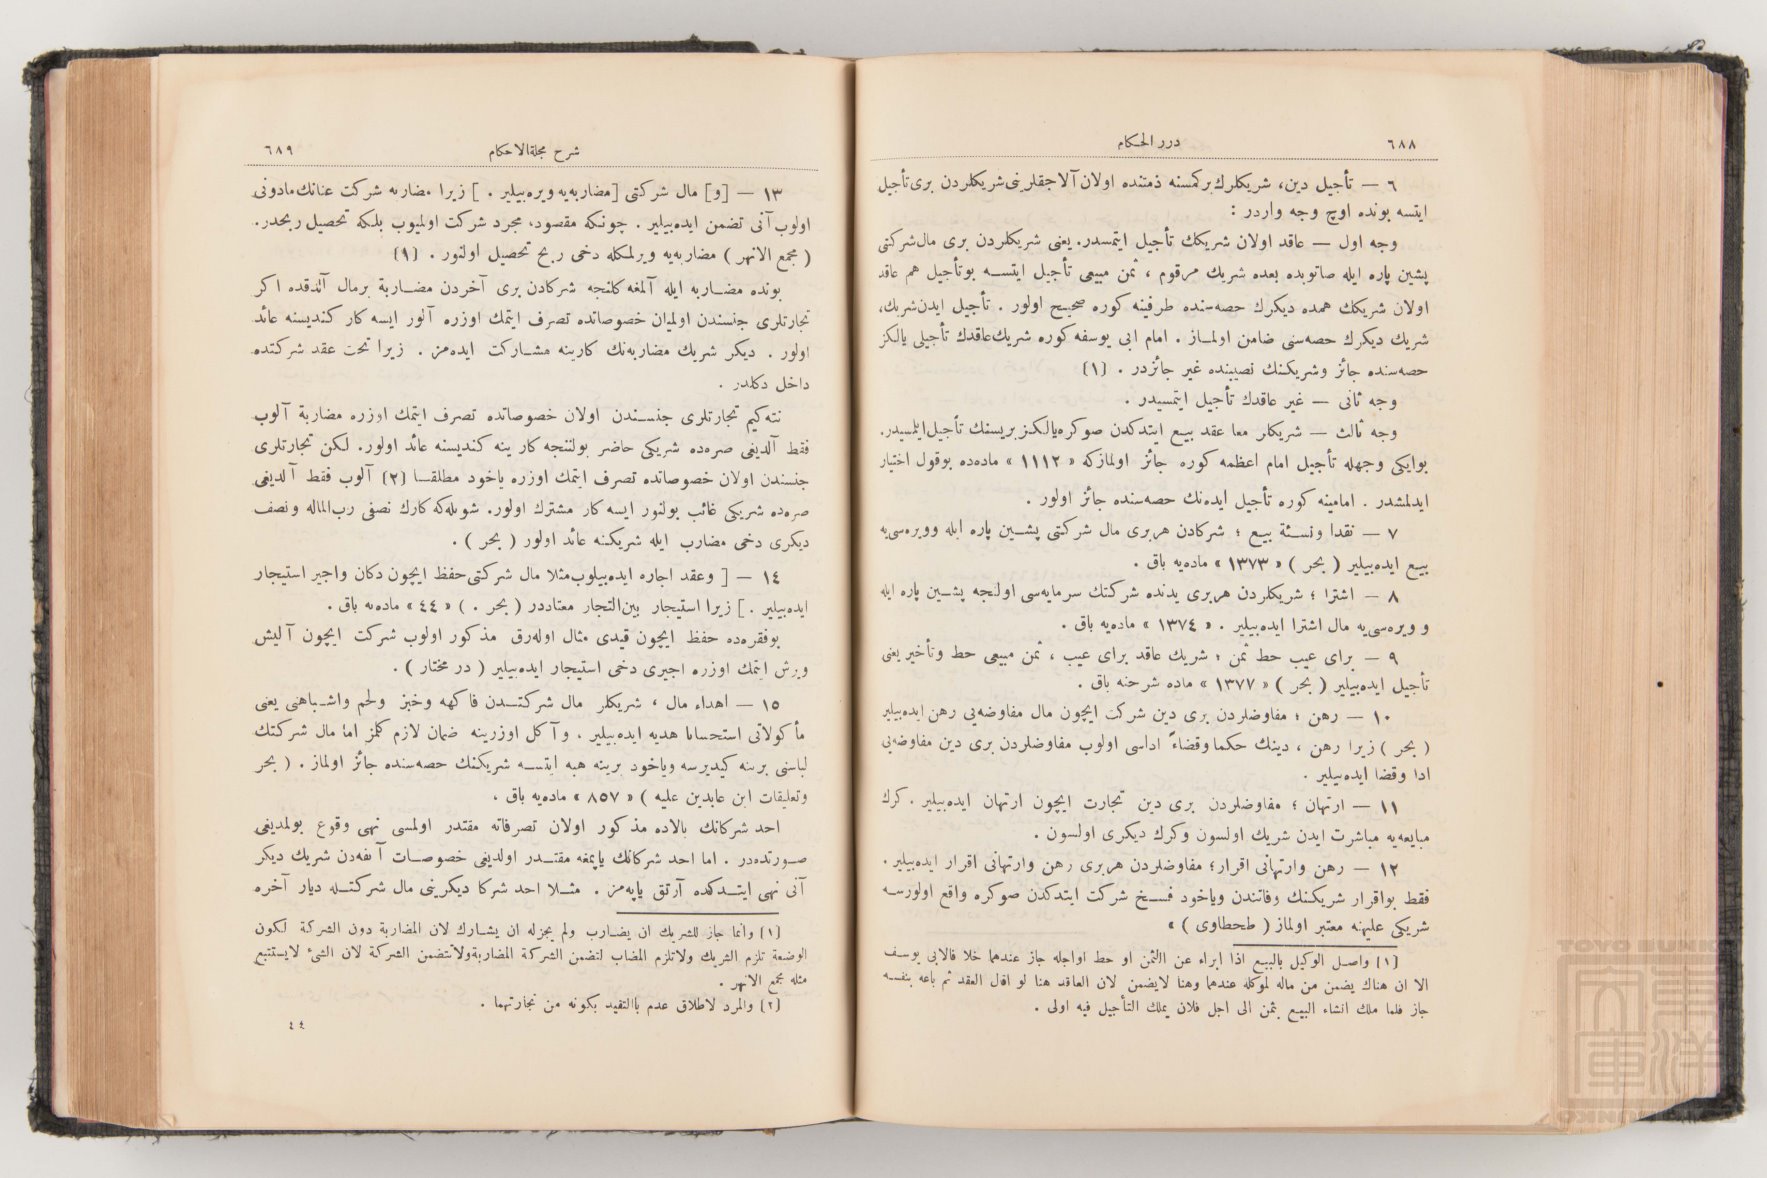 ٦٨٨
درر الحكام
٦ — تأجيل دين، شريكلرك بركمسنه ذمتنده اولان آلاجقلرينى شريكلردن برى تأجيل
ايتسه بونده اوچ وجه واردر :
وجه اول — عاقد اولان شريكك تأجيل ايتمسدر. يعنى شريكلردن برى مال شركتى
پشين پاره ايله صاتوبده بعده شريك مرقوم ، ثمن مبيعى تأجيل ايتسه بو تأجيل هم عاقد
اولان شريكك همده ديكرك حصه‌سنده طرفينه كوره صحيح اولور . تأجيل ايدن شريك،
شريك ديكرك حصه‌سنى ضامن اولماز . امام ابى يوسفه كوره شريك عاقدك تأجيلى يالكز
حصه‌سنده جائز وشريكنك نصيبنده غير جائزدر . [١]
وجه ثانى — غير عاقدك تأجيل ايتمسيدر .
وجه ثالث — شريكلر معا عقد بيع ايتدكدن صوكره يالكز بريسنك تأجيل ايلمسيدر.
بوايكى وجهله تأجيل امام اعظمه كوره جائز اولمازكه « ١١١٢ » ماده‌ده بوقول اختيار
ايدلمشدر . امامينه كوره تأجيل ايده‌نك حصه‌سنده جائز اولور .
٧ — نقدا ونسئة بيع ؛ شركادن هربرى مال شركتى پشين پاره ايله وويره‌سى‌يه
بيع ايده‌بيلير ( بحر ) « ١٣٧٣ » ماده‌يه باق .
٨ — اشترا ؛ شريكلردن هربرى يدنده شركتك سرمايه‌سى اولنجه پشين پاره ايله
و ويره‌سى‌يه مال اشترا ايده‌بيلير . « ١٣٧٤ » ماده‌يه باق .
٩ — براى عيب حط ثمن ؛ شريك عاقد براى عيب ، ثمن مبيعى حط وتأخير يعنى
تأجيل ايده‌بيلير ( بحر ) « ١٣٧٧ » ماده شرحنه باق .
١٠ — رهن ؛ مفاوضلردن برى دين شركت ايچون مال مفاوضه‌يى رهن ايده‌بيلير
( بحر ) زيرا رهن ، دينك حكما وقضاءً اداسى اولوب مفاوضلردن برى دين مفاوضه‌يى
ادا وقضا ايده‌بيلير .
١١ — ارتهان ؛ مفاوضلردن برى دين تجارت ايچون ارتهان ايده‌بيلير . كرك
مبايعه‌يه مباشرت ايدن شريك اولسون وكرك ديكرى اولسون .
١٢ — رهن وارتهانى اقرار؛ مفاوضلردن هربرى رهن وارتهانى اقرار ايده‌بيلير.
فقط بواقرار شريكنك وفاتندن وياخود فسخ شركت ايتدكدن صوكره واقع اولورسه
شريكى عليهنه معتبر اولماز ( طحطاوى ) »
[١] واصل الوكيل بالبيع اذا ابراء عن االثمن او حط اواجله جاز عندهما خلا فالابى يوسف
الا ان هناك يضمن من ماله لموكله عندهما وهنا لايضمن لان العاقد هنا لو اقال العقد ثم باعه بنفسه
جاز فلما ملك انشاء البيع بثمن الى اجل فلان يملك التأجيل فيه اولى .
شرح مجلةالاحكام
٦٨٩
١٣ — [و] مال شركتى [مضاربه‌يه ويره‌بيلير . ] زيرا مضاربه شركت عنانك مادونى
اولوب آنى تضمن ايده‌بيلير . چونكه مقصود، مجرد شركت اولميوب بلكه تحصيل ربحدر.
( مجمع الانهر ) مضاربه‌يه ويرلمكله دخى ربح تحصيل اولنور . [١]
بونده مضاربه ايله آلمغه كلنجه شركادن برى آخردن مضاربة برمال آلدقده اكر
تجارتلرى جنسندن اولميان خصوصاتده تصرف ايتمك اوزره آلور ايسه كار كنديسنه عائد
اولور . ديكر شريك مضاربه‌نك كارينه مشاركت ايده‌مز . زيرا تحت عقد شركتده
داخل دكلدر .
نته‌كيم تجارتلرى جنسندن اولان خصوصاتده تصرف ايتمك اوزره مضاربة آلوب
فقط آلديغى صره‌ده شريكى حاضر بولنجه كار ينه كنديسنه عائد اولور. لكن تجارتلرى
جنسندن اولان خصوصاتده تصرف ايتمك اوزره ياخود مطلقا [٢] آلوب فقط آلديغى
صره‌ده شريكى غائب بولنور ايسه كار مشترك اولور. شويله‌كه كارك نصفى رب‌الماله ونصف
ديكرى دخى مضارب ايله شريكنه عائد اولور ( بحر ) .
١٤ — [ وعقد اجاره ايده‌بيلوب مثلا مال شركتى حفظ ايچون دكان واجير استيجار
ايده‌بيلير . ] زيرا استيجار بين‌التجار معتاددر ( بحر . ) « ٤٤ » ماده‌يه باق .
بوفقره‌ده حفظ ايچون قيدى مثال اوله‌رق مذكور اولوب شركت ايچون آليش
ويرش ايتمك اوزره اجيرى دخى استيجار ايده‌بيلير ( در مختار ) .
١٥ — اهداء مال ، شريكلر مال شركتدن فاكهه وخبز ولحم واشباهنى يعنى
مأكولاتى استحسانا هديه ايده‌بيلير . وآكل اوزرينه ضمان لازم كلمز اما مال شركتك
لباسنى برينه كيديرسه وياخود برينه هبه ايتسه شريكنك حصه‌سنده جائز اولماز . ( بحر
وتعليقات ابن عابدين عليه ) « ٨٥٧ » ماده‌يه باق .
احد شركانك بالاده مذكور اولان تصرفاته مقتدر اولمسى نهى وقوع بولمديغى
صورتده‌در . اما احد شركانك ياپمغه مقتدر اولديغى خصوصات آنفه‌دن شريك ديكر
آنى نهى ايتدكده آرتق ياپه‌مز . مثلا احد شركا ديكرينى مال شركتله ديار آخره
[١] وانما جاز للشريك ان يضارب ولم يجزله ان يشارك لان المضاربة دون الشركة لكون
الوضعة تلزم الشريك ولاتلزم المضاب لتضمن الشركة المضاربةولاتتضمن الشركة لان الشئ لايستتبع
مثله مجمع الانهر .
[٢] والمرد لاطلاق عدم باالتقيد بكونه من تجارتهما .
٤٤
TOYO BUNKO
東洋文庫